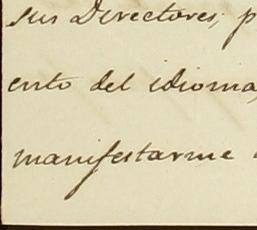 sus Directores; p
ento del idioma,
manifestarme